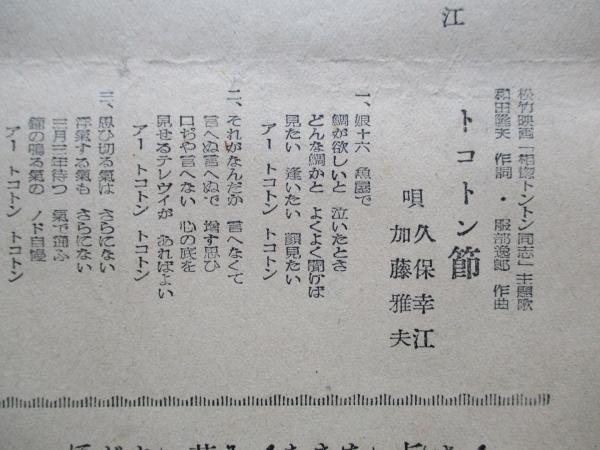 江
松竹映画「相惚トントン同志」主題歌
和田隆夫 作詞 ・ 服部逸郎 作曲
トコトン節
唄 久保幸江
加藤雅夫
一、娘十六 魚屋で
鯛が欲しいと 泣いたとさ
どんな鯛かと よくよく聞けば
見たい 逢いたい 顔見たい
アー トコトン トコトン
二、それがなんだか 言へなくて
言へぬ言へぬで 増す思ひ
口ぢや言へない 心の底を
見せるテレヴイが あればよい
アー トコトン トコトン
三、思ひ切る氣は さらにない
浮氣する氣も さらにない
三月三年待つ 氣で通ふ
鐘の鳴る氣の ノド自慢
アー トコトン トコトン